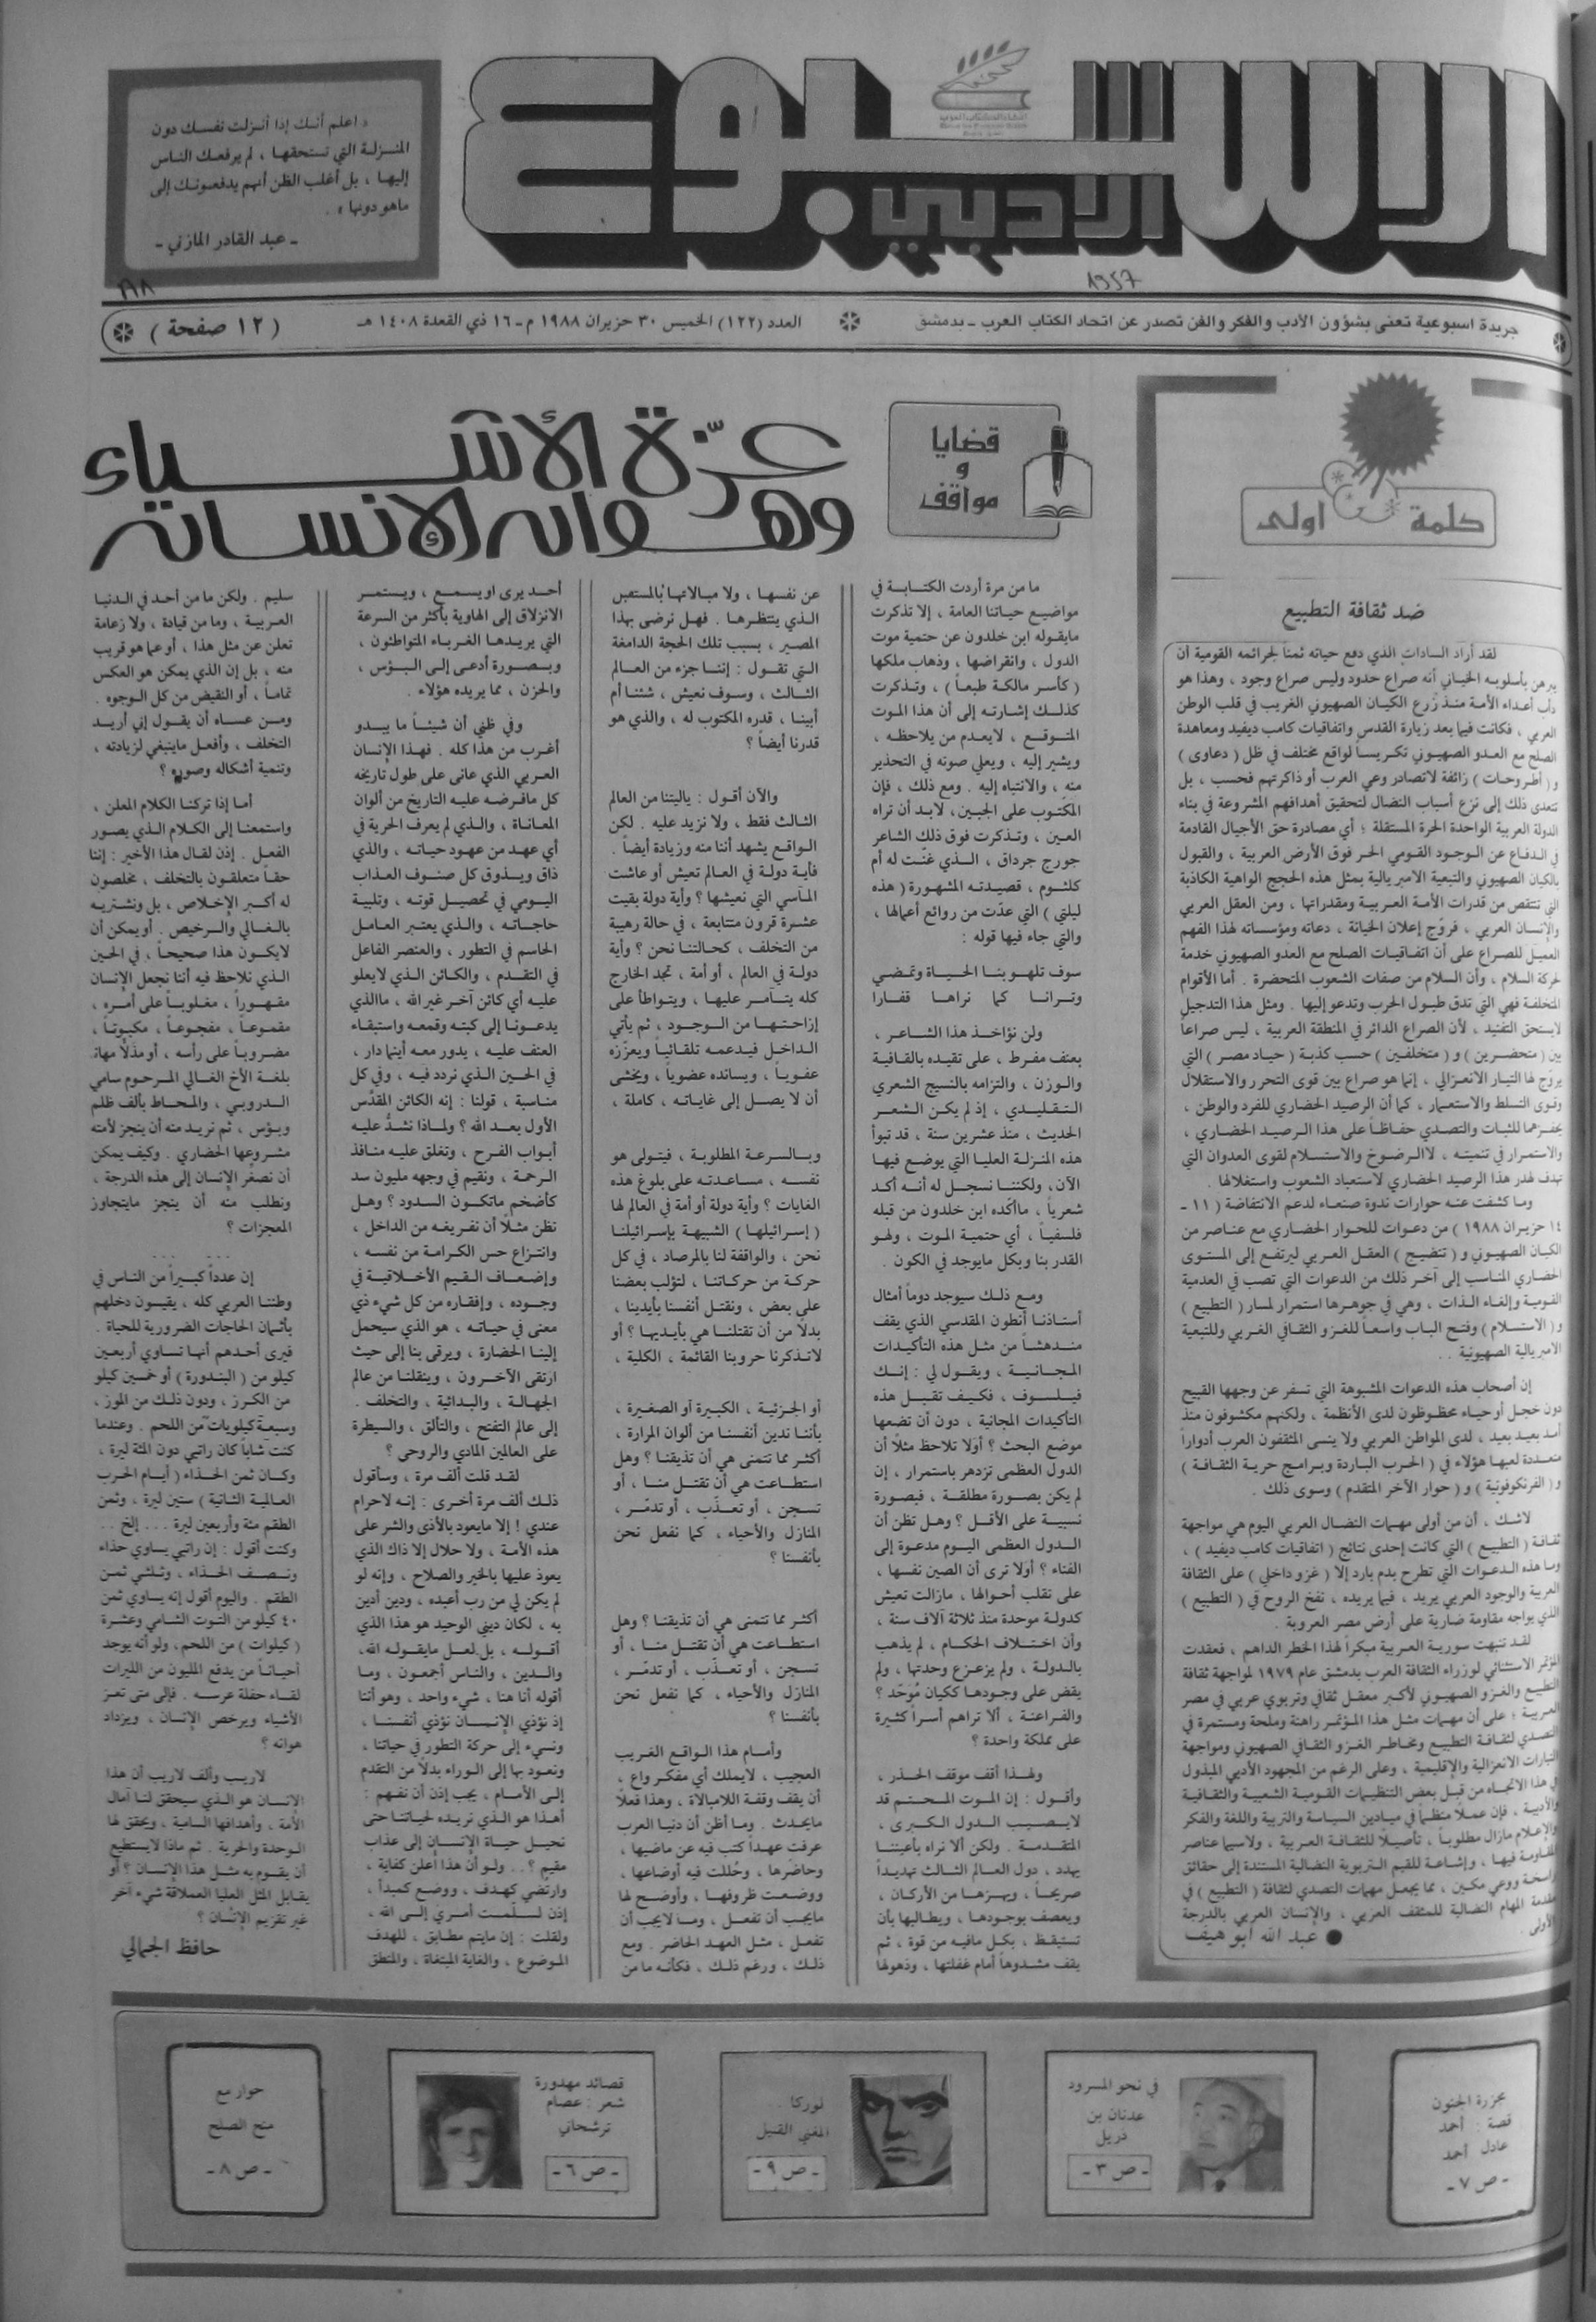 الأسبوع الأدبي
« اعلم أنك إذا أنزلت نفسك دون
المنزلة التي تستحقها ، لم يرفعك الناس
إليها ، بل أغلب الظن أنهم يدفعونك إلى
ماهو دونها » .
ـ عبد القادر المازني ـ
1957
جريدة اسبوعية تعنى بشؤون الأدب والفكر والفن تصدر عن اتحاد الكتاب العرب ـ بدمشق
العدد (١٢٢) الخميس ٣٠ حزيران ١٩٨٨ م ـ ١٦ ذي القعدة ١٤٠٨ هـ
( ١٢ صفحة )
كلمة أولى
ضد ثقافة التطبيع
لقد أراد السادات الذي دفع حياته ثمناً لجرائمه القومية أن
يبرهن بأسلوبه الخياني أنه صراع حدود وليس صراع وجود ، وهذا هو
دأب أعداء الأمة منذ زرع الكيان الصهيوني الغريب في قلب الوطن
العربي ، فكانت فيما بعد زيارة القدس واتفاقيات كامب ديفيد ومعاهدة
الصلح مع العدو الصهيوني تكريساً لواقع مختلف في ظل ( دعاوى )
و ( أطروحات ) زائفة لاتصادر وعي العرب أو ذاكرتهم فحسب ، بل
تتعدى ذلك إلى نزع أسباب النضال لتحقيق أهدافهم المشروعة في بناء
الدولة العربية الواحدة الحرة المستقلة ؛ أي مصادرة حق الأجيال القادمة
في الدفاع عن الوجود القومي الحر فوق الأرض العربية ، والقبول
بالكيان الصهيوني والتبعية الامبريالية بمثل هذه الحجج الواهية الكاذبة
التي تنتقص من قدرات الأمة العربية ومقدراتها ، ومن العقل العربي
والإنسان العربي ، فروّج إعلان الخيانة ، دعاته ومؤسساته لهذا الفهم
العميل للصراع على أن اتفاقيات الصلح مع العدو الصهيوني خدمة
لحركة السلام ، وأن السلام من صفات الشعوب المتحضرة . أما الأقوام
المتخلفة فهي التي تدق طبول الحرب وتدعو إليها . ومثل هذا التدجيل
لايستحق التفنيد ، لأن الصراع الدائر في المنطقة العربية ، ليس صراعاً
بين ( متحضرين ) و ( متخلفين ) حسب كذبة ( حياد مصر ) التي
يروّج لها التيار الانعزالي ، إنما هو صراع بين قوى التحرر والاستقلال
وقوى التسلط والاستعمار ، كما أن الرصيد الحضاري للفرد والوطن ،
يحفزهما للثبات والتصدي حفاظاً على هذا الرصيد الحضاري ،
والاستمرار في تنميته ، لاالرضوخ والاستسلام لقوى العدوان التي
تهدف لهدر هذا الرصيد الحضاري لاستعباد الشعوب واستغلالها .
وما كشفت عنه حوارات ندوة صنعاء لدعم الانتفاضة ( ١١ ـ
١٤ حزيران ١٩٨٨ ) من دعوات للحوار الحضاري مع عناصر من
الكيان الصهيوني و ( تنضيج ) العقل العربي ليرتفع إلى المستوى
الحضاري المناسب إلى آخر ذلك من الدعوات التي تصب في العدمية
القومية وإلغاء الذات ، وهي في جوهرها استمرار لمسار ( التطبيع )
و ( الاستسلام ) وفتح الباب واسعاً للغزو الثقافي الغربي وللتبعية
الامبريالية الصهيونية . .
إن أصحاب هذه الدعوات المشبوهة التي تسفر عن وجهها القبيح
دون خجل أو حياء محظوظون لدى الأنظمة ، ولكنهم مكشوفون منذ
أمد بعيد بعيد ، لدى المواطن العربي ولا ينسى المثقفون العرب أدواراً
متعددة لعبها هؤلاء في ( الحرب الباردة وبرامج حرية الثقافة )
و ( الفرنكوفونية ) و ( حوار الآخر المتقدم ) وسوى ذلك .
لاشك ، أن من أولى مهمات النضال العربي اليوم هي مواجهة
ثقافة ( التطبيع ) التي كانت إحدى نتائج ( اتفاقيات كامب ديفيد ) ،
وما هذه الدعوات التي تطرح بدم بارد إلا ( غزو داخلي ) على الثقافة
العربية والوجود العربي يريد ، فيما يريده ، نفخ الروح في ( التطبيع )
الذي يواجه مقاومة ضارية على أرض مصر العروبة .
لقد تنبهت سورية العربية مبكراً لهذا الخطر الداهم ، فعقدت
المؤتمر الاستثنائي لوزراء الثقافة العرب بدمشق عام ١٩٧٩ لمواجهة ثقافة
التطبيع والغزو الصهيوني لأكبر معقل ثقافي وتربوي عربي في مصر
العربية ؛ على أن مهمات مثل هذا المؤتمر راهنة وملحة ومستمرة في
التصدي لثقافة التطبيع ومخاطر الغزو الثقافي الصهيوني ومواجهة
التيارات الانعزالية والإقليمية ، وعلى الرغم من المجهود الأدبي المبذول
في هذا الاتجاه من قبل بعض التنظيمات القومية الشعبية والثقافية
والأدبية ، فإن عملاً منظماً في ميادين السياسة والتربية واللغة والفكر
والإعلام مازال مطلوباً ، تأصيلاً للثقافة العربية ، ولاسيما عناصر
المقاومة فيها ، وإشاعة للقيم التربوية النضالية المستندة إلى حقائق
راسخة ووعي مكين ، مما يجعل مهمات التصدي لثقافة ( التطبيع ) في
مقدمة المهام النضالية للمثقف العربي ، والإنسان العربي بالدرجة
الأولى .
● عبد الله أبو هيف
قضايا
و
مواقف
عزّة الأشياء
وهوان الإنسان
ما من مرة أردت الكتابة في
مواضيع حياتنا العامة ، إلا تذكرت
مايقوله ابن خلدون عن حتمية موت
الدول ، وانقراضها ، وذهاب ملكها
( كأسر مالكة طبعاً ) ، وتذكرت
كذلك إشارته إلى أن هذا الموت
المتوقع ، لايعدم من يلاحظه ،
ويشير إليه ، ويعلي صوته في التحذير
منه ، والانتباه إليه . ومع ذلك ، فإن
المكتوب على الجبين ، لابد أن تراه
العين ، وتذكرت فوق ذلك الشاعر
جورج جرداق ، الذي غنّت له أم
كلثوم ، قصيدته المشهورة ( هذه
ليلتي ) التي عدّت من روائع أعمالها ،
والتي جاء فيها قوله :
سوف تلهو بنا الحياة وتمضي
وترانا كما نراها قفارا
ولن نؤاخذ هذا الشاعر ،
بعنف مفرط ، على تقيده بالقافية
والوزن ، والتزامه بالنسيج الشعري
التقليدي ، إذ لم يكن الشعر
الحديث ، منذ عشرين سنة ، قد تبوأ
هذه المنزلة العليا التي يوضع فيها
الآن ، ولكننا نسجل له أنه أكد
شعرياً ، ماأكّده ابن خلدون من قبله
فلسفياً ، أي حتمية الموت ، ولهو
القدر بنا وبكل مايوجد في الكون .
ومع ذلك سيوجد دوماً أمثال
أستاذنا أنطون المقدسي الذي يقف
مندهشاً من مثل هذه التأكيدات
المجانية ، ويقول لي : إنك
فيلسوف ، فكيف تقبل هذه
التأكيدات المجانية ، دون أن تضعها
موضع البحث ؟ أولا تلاحظ مثلاً أن
الدول العظمى تزدهر باستمرار ، إن
لم يكن بصورة مطلقة ، فبصورة
نسبية على الأقل ؟ وهل تظن أن
الدول العظمى اليوم مدعوة إلى
الفناء ؟ أولا ترى أن الصين نفسها ،
على تقلب أحوالها ، مازالت تعيش
كدولة موحدة منذ ثلاثة آلاف سنة ،
وأن اختلاف الحكام ، لم يذهب
بالدولة ، ولم يزعزع وحدتها ، ولم
يقض على وجودها ككيان مُوَحَّد ؟
والفراعنة ، ألا تراهم أسراً كثيرة
على مملكة واحدة ؟
ولهذا أقف موقف الحذر ،
وأقول : إن الموت المحتم قد
لايصيب الدول الكبرى ،
المتقدمة . ولكن ألا نراه بأعيننا
يهدد ، دول العالم الثالث تهديداً
صريحاً ، ويهزها من الأركان ،
ويعصف بوجودها ، ويطالبها بأن
تستيقظ ، بكل مافيه من قوة ، ثم
يقف مشدوهاً أمام غفلتها ، وذهولها
عن نفسها ، ولا مبالاتها بالمستقبل
الذي ينتظرها . فهل نرضى بهذا
المصير ، بسبب تلك الحجة الدامغة
التي تقول : إننا جزء من العالم
الثالث ، وسوف نعيش ، شئنا أم
أبينا ، قدره المكتوب له ، والذي هو
قدرنا أيضاً ؟
والآن أقول : ياليتنا من العالم
الثالث فقط ، ولا نزيد عليه . لكن
الواقع يشهد أننا منه وزيادة أيضاً .
فأية دولة في العالم تعيش أو عاشت
المآسي التي نعيشها ؟ وأية دولة بقيت
عشرة قرون متتابعة ، في حالة رهيبة
من التخلف ، كحالتنا نحن ؟ وأية
دولة في العالم ، أو أمة ، تجد الخارج
كله يتآمر عليها ، ويتواطأ على
إزاحتها من الوجود ، ثم يأتي
الداخل فيدعمه تلقائياً ويعزّزه
عفوياً ، ويسانده عضوياً ، ويخشى
أن لا يصل إلى غاياته ، كاملة ،
وبالسرعة المطلوبة ، فيتولى هو
نفسه ، مساعدته على بلوغ هذه
الغايات ؟ وأية دولة أو أمة في العالم لها
( إسرائيلها ) الشبيهة بإسرائيلنا
نحن ، والواقفة لنا بالمرصاد ، في كل
حركة من حركاتنا ، لتؤلب بعضنا
على بعض ، ونقتل أنفسنا بأيدينا ،
بدلاً من أن تقتلنا هي بأيديها ؟ أو
لاتذكرنا حروبنا القائمة ، الكلية ،
أو الجزئية ، الكبيرة أو الصغيرة ،
بأننا ندين أنفسنا من ألوان المرارة ،
أكثر مما تتمنى هي أن تذيقنا ؟ وهل
استطاعت هي أن تقتل منا ، أو
تسجن ، أو تعذّب ، أو تدمّر ،
المنازل والأحياء ، كما نفعل نحن
بأنفسنا ؟
أكثر مما تتمنى هي أن تذيقنا ؟ وهل
استطاعت هي أن تقتل منا ، أو
تسجن ، أو تعذّب ، أو تدمّر ،
المنازل والأحياء ، كما نفعل نحن
بأنفسنا ؟
وأمام هذا الواقع الغريب
العجيب ، لايملك أي مفكر واع ،
أن يقف وقفة اللامبالاة ، وهذا فعلاً
مايحدث . وما أظن أن دنيا العرب
عرفت عهداً كتب فيه عن ماضيها ،
وحاضرها ، وحُللت فيه أوضاعها ،
ووضعت ظروفها ، وأوضح لها
مايجب أن تفعل ، وما لايجب أن
تفعل ، مثل العهد الحاضر . ومع
ذلك ، ورغم ذلك ، فكأنه ما من
أحد يرى او يسمع ، ويستمر
الانزلاق إلى الهاوية بأكثر من السرعة
التي يريدها الغرباء المتواطئون ،
وبصورة أدعى إلى البؤس ،
والحزن ، مما يريده هؤلاء .
وفي ظني أن شيئاً ما يبدو
أغرب من هذا كله . فهذا الإنسان
العربي الذي عانى على طول تاريخه
كل مافرضه عليه التاريخ من ألوان
المعاناة ، والذي لم يعرف الحرية في
أي عهد من عهود حياته ، والذي
ذاق ويذوق كل صنوف العذاب
اليومي في تحصيل قوته ، وتلبية
حاجاته ، والذي يعتبر العامل
الحاسم في التطور ، والعنصر الفاعل
في التقدم ، والكائن الذي لايعلو
عليه أي كائن آخر غير الله ، ماالذي
يدعونا إلى كبته وقمعه واستبقاء
العنف عليه ، يدور معه أينما دار ،
في الحين الذي نردد فيه ، وفي كل
مناسبة ، قولنا : إنه الكائن المقدّس
الأول بعد الله ؟ ولماذا نشدُّ عليه
أبواب الفرح ، ونغلق عليه منافذ
الرحمة ، ونقيم في وجهه مليون سد
كأضخم ماتكون السدود ؟ وهل
نظن مثلاً أن تفريغه من الداخل ،
وانتزاع حس الكرامة من نفسه ،
وإضعاف القيم الأخلاقية في
وجوده ، وإفقاره من كل شيء ذي
معنى في حياته ، هو الذي سيحمل
إلينا الحضارة ، ويرقى بنا إلى حيث
ارتقى الآخرون ، وينقلنا من عالم
الجهالة ، والبدائية ، والتخلف .
إلى عالم التفتح ، والتألق ، والسيطرة
على العالمين المادي والروحي ؟
لقد قلت ألف مرة ، وسأقول
ذلك ألف مرة أخرى : إنه لاحرام
عندي ! إلا مايعود بالأذى والشر على
هذه الأمة ، ولا حلال إلا ذاك الذي
يعود عليها بالخير والصلاح ، وإنه لو
لم يكن لي من رب أعبده ، ودين أدين
به ، لكان ديني الوحيد هو هذا الذي
أقوله ، بل لعل مايقوله الله ،
والدين ، والناس أجمعون ، وما
أقوله أنا هنا ، شيء واحد ، وهو أننا
إذ نؤذي الإنسان نؤذي أنفسنا ،
ونسيء إلى حركة التطور في حياتنا ،
ونعود بها إلى الوراء بدلاً من التقدم
إلى الأمام ، يجب إذن أن نفهم :
أهذا هو الذي نريده لحياتنا حتى
نحيل حياة الإنسان إلى عذاب
مقيم ؟ . . ولو أن هذا أعلن كفاية ،
وارتضي كهدف ، ووضع كمبدأ ،
إذن لسلّمت أمري إلى الله ،
ولقلت : إن مايتم مطابق ، للهدف
الموضوع ، والغاية المبتغاة ، والمنطق
سليم . ولكن ما من أحد في الدنيا
العربية ، وما من قيادة ، ولا زعامة
تعلن عن مثل هذا ، أو عما هو قريب
منه ، بل إن الذي يمكن هو العكس
تماماً ، أو النقيض من كل الوجوه .
ومن عساه أن يقول إني أريد
التخلف ، وأفعل ماينبغي لزيادته ،
وتنمية أشكاله وصوره ؟
أما إذا تركنا الكلام المعلن ،
واستمعنا إلى الكلام الذي يصور
الفعل . إذن لقال هذا الأخير : إننا
حقاً متعلقون بالتخلف ، مخلصون
له أكبر الإخلاص ، بل ونشتريه
بالغالي والرخيص . أو يمكن أن
لايكون هذا صحيحاً ، في الحين
الذي نلاحظ فيه أننا نجعل الإنسان
مقهوراً ، مغلوباً على أمره ،
مقموعاً ، مفجوعاً ، مكبوتاً ،
مضروباً على رأسه ، أو مذلاً مهانا
بلغة الأخ الغالي المرحوم سامي
الدروبي ، والمحاط بألف ظلم
وبؤس ، ثم نريد منه أن ينجز لأمته
مشروعها الحضاري . وكيف يمكن
أن نصغّر الإنسان إلى هذه الدرجة ،
ونطلب منه أن ينجز مايتجاوز
المعجزات ؟
... ...
إن عدداً كبيراً من الناس في
وطننا العربي كله ، يقيسون دخلهم
بأثمان الحاجات الضرورية للحياة .
فيرى أحدهم أنها تساوي أربعين
كيلو من ( البندورة ) أو خمسين كيلو
من الكرز ، ودون ذلك من الموز ،
وسبعة كيلويات من اللحم . وعندما
كنت شاباً كان راتبي دون المئة ليرة ،
وكان ثمن الحذاء ( أيام الحرب
العالمية الثانية ) ستين ليرة ، وثمن
الطقم مئة وأربعين ليرة . . . إلخ . .
وكنت أقول : إن راتبي يساوي حذاء
ونصف الحذاء ، وثلثي ثمن
الطقم . واليوم أقول إنه يساوي ثمن
٤٠ كيلو من التوت الشامي وعشرة
( كيلوات ) من اللحم ، ولو أنه يوجد
أحياناً من يدفع المليون من الليرات
لقاء حفلة عرسه . فإلى متى تعز
الأشياء ويرخص الإنسان ، ويزداد
هوانه ؟
لاريب وألف لاريب أن هذا
الإنسان هو الذي سيحقق لنا آمال
الأمة ، وأهدافها السامية ، ويحقق لها
الوحدة والحرية . ثم ماذا لايستطيع
أن يقوم به مثل هذا الإنسان ؟ أو
يقابل المثل العليا العملاقة شيء آخر
غير تقزيم الإنسان ؟
حافظ الجمالي
مجزرة الجنون
قصة : أحمد
عادل أحمد
ـ ص ٧ ـ
في نحو المسرود
عدنان بن
ذريل
ـ ص ٣ ـ
لوركا
المغني القتيل
ـ ص ٩ ـ
قصائد مهدورة
شعر : عصام
ترشحاني
ـ ص ٦ ـ
حوار مع
منح الصلح
ـ ص ٨ ـ